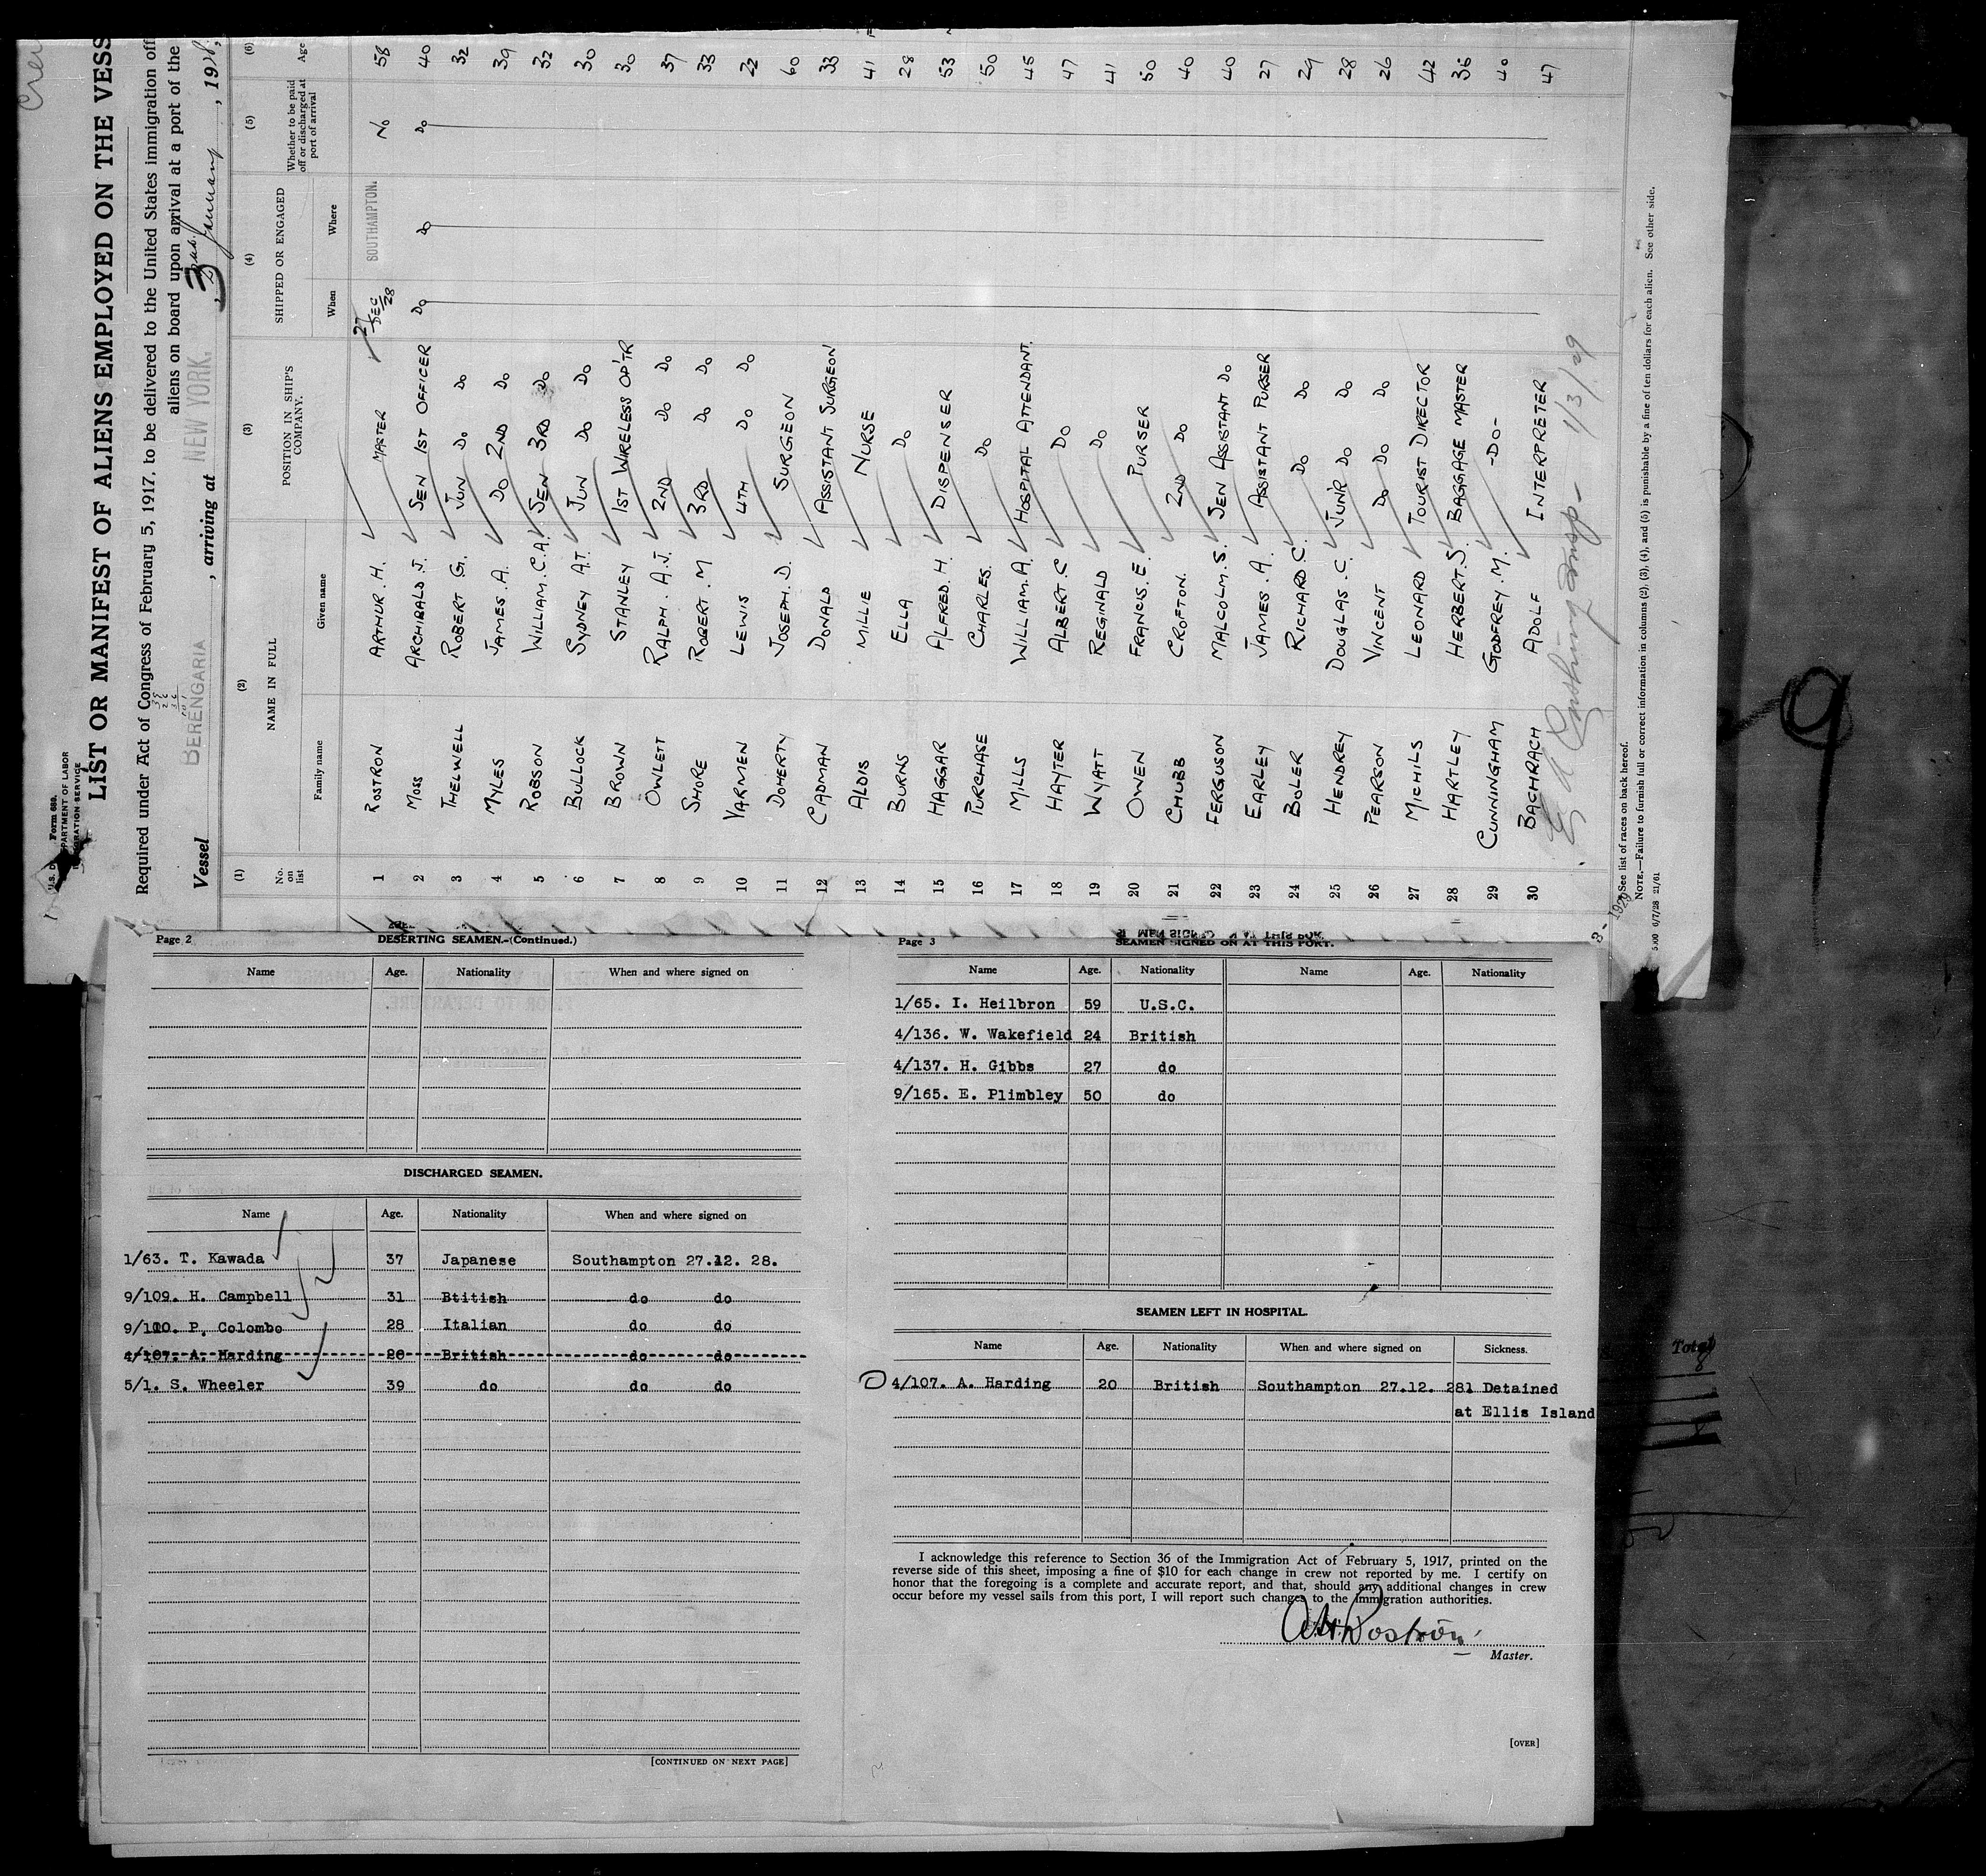 Crew
Form 689
U.S. DEPARTMENT OF LABOR
IMMIGRATION SERVICE
LIST OR MANIFEST OF ALIENS EMPLOYED ON THE VESS
Required under Act of Congress of February 5, 1917, to be delivered to the United States immigration off
aliens on board upon arrival at a port of the
Vessel BERENGARIA , arriving at NEW YORK. , 3 January , 19
(1) (2) (3) (4) (5) (6)
No. on list NAME IN FULL POSITION IN SHIP'S COMPANY. SHIPPED OR ENGAGED Whether to be paid off or discharged at port of arrival Age
Family name Given name When Where
1 ROSTRON ARTHUR. H. MASTER 27 DEC/28 SOUTHAMPTON. No 58
2 MOSS ARCHIBALD. J. SEN 1ST OFFICER Do Do Do 40
3 THELWELL ROBERT G. JUN Do Do 32
4 MYLES JAMES. A. Do 2ND Do 39
5 ROBSON WILLIAM. C.A. SEN 3RD Do 32
6 BULLOCK SYDNEY A.T. JUN Do Do 30
7 BROWN STANLEY 1ST WIRELESS OP'TR 30
8 OWLETT RALPH. A.J. 2ND Do Do 37
9 SHORE ROBERT. M 3RD Do Do 33
10 VARMEN LEWIS 4TH Do Do 22
11 DOHERTY JOSEPH. D. SURGEON 60
12 CADMAN DONALD ASSISTANT SURGEON 33
13 ALDIS MILLIE NURSE 41
14 BURNS ELLA Do 28
15 HAGGAR ALFRED. H. DISPENSER 53
16 PURCHASE CHARLES. Do 50
17 MILLS WILLIAM. A. HOSPITAL ATTENDANT. 45
18 HAYTER ALBERT. C Do 47
19 WYATT REGINALD Do 41
20 OWEN FRANCIS. E. PURSER 50
21 CHUBB CROFTON. 2ND Do 40
22 FERGUSON MALCOLM. S. SEN ASSISTANT Do 40
23 EARLEY JAMES. A. ASSISTANT PURSER 27
24 BOLER RICHARD. C. Do Do 29
25 HENDREY DOUGLAS. C. JUN'R Do Do 28
26 PEARSON VINCENT Do Do Do 26
27 MICHILS LEONARD TOURIST DIRECTOR 42
28 HARTLEY HERBERT. S. BAGGAGE MASTER 36
29 CUNNINGHAM GODFREY. M. -DO- 40
30 BACHRACH ADOLF INTERPRETER 47
1/3/29
See list of races on back hereof.
NOTE.—Failure to furnish full or correct information in columns (2), (3), (4), and (5) is punishable by a fine of ten dollars for each alien. See other side.
500 6/7/28 21/61
Page 2 DESERTING SEAMEN.-(Continued.)
Name Age. Nationality When and where signed on
DISCHARGED SEAMEN.
Name Age. Nationality When and where signed on
1/63. T. Kawada 37 Japanese Southampton 27.12. 28.
9/109. H. Campbell 31 Btitish do do
9/110. P. Colombo 28 Italian do do
4/107. A. Harding 20 British do do
5/1. S. Wheeler 39 do do do
[CONTINUED ON NEXT PAGE]
Page 3 SEAMEN SIGNED ON AT THIS PORT.
Name Age. Nationality Name Age. Nationality
1/65. I. Heilbron 59 U.S.C.
4/136. W. Wakefield 24 British
4/137. H. Gibbs 27 do
9/165. E. Plimbley 50 do
SEAMEN LEFT IN HOSPITAL.
Name Age. Nationality When and where signed on Sickness.
4/107. A. Harding 20 British Southampton 27.12. 281 Detained
at Ellis Island
I acknowledge this reference to Section 36 of the Immigration Act of February 5, 1917, printed on the
reverse side of this sheet, imposing a fine of $10 for each change in crew not reported by me. I certify on
honor that the foregoing is a complete and accurate report, and that, should any additional changes in crew
occur before my vessel sails from this port, I will report such changes to the immigration authorities.
A.H. Rostron
Master.
[OVER]
9
Total